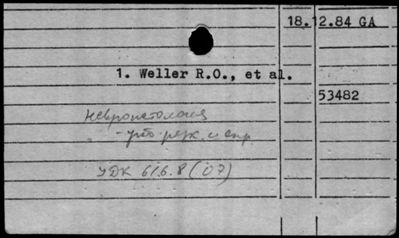 18.12.84 GA
1. Weller R.O., et al.
53482
Невропатология
УДК 616.8 (07)